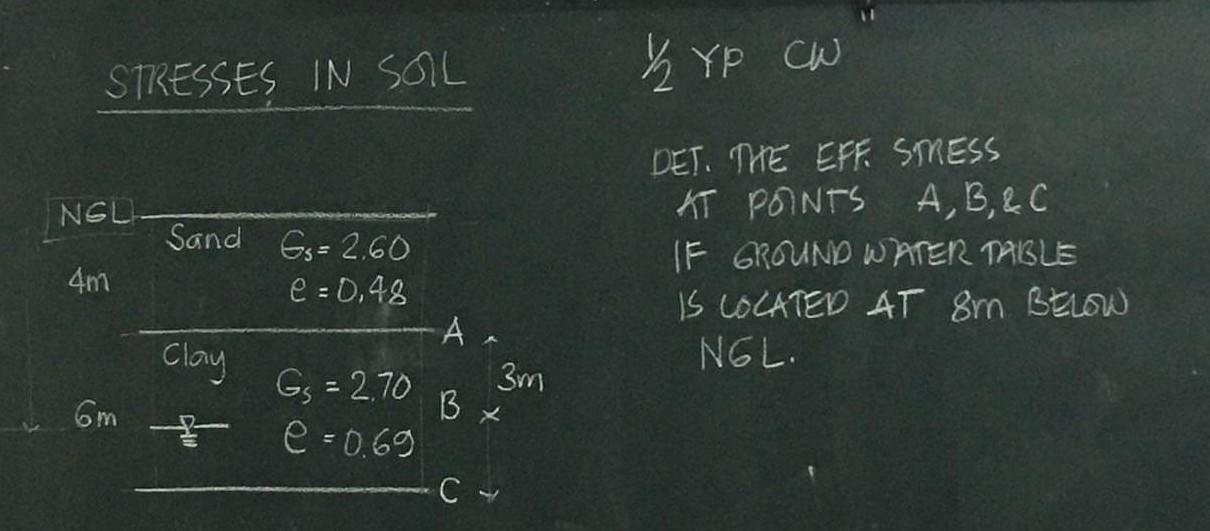 STRESSES IN SOIL
NGL
Sand Gs = 2.60
4m
e = 0.48
A
Clay
Gs = 2.70
3m
B
6m
e = 0.69
C
1/2 YP CW
DET. THE EFF. STRESS
AT POINTS A, B, & C
IF GROUND WATER TABLE
IS LOCATED AT 8m BELOW
NGL.